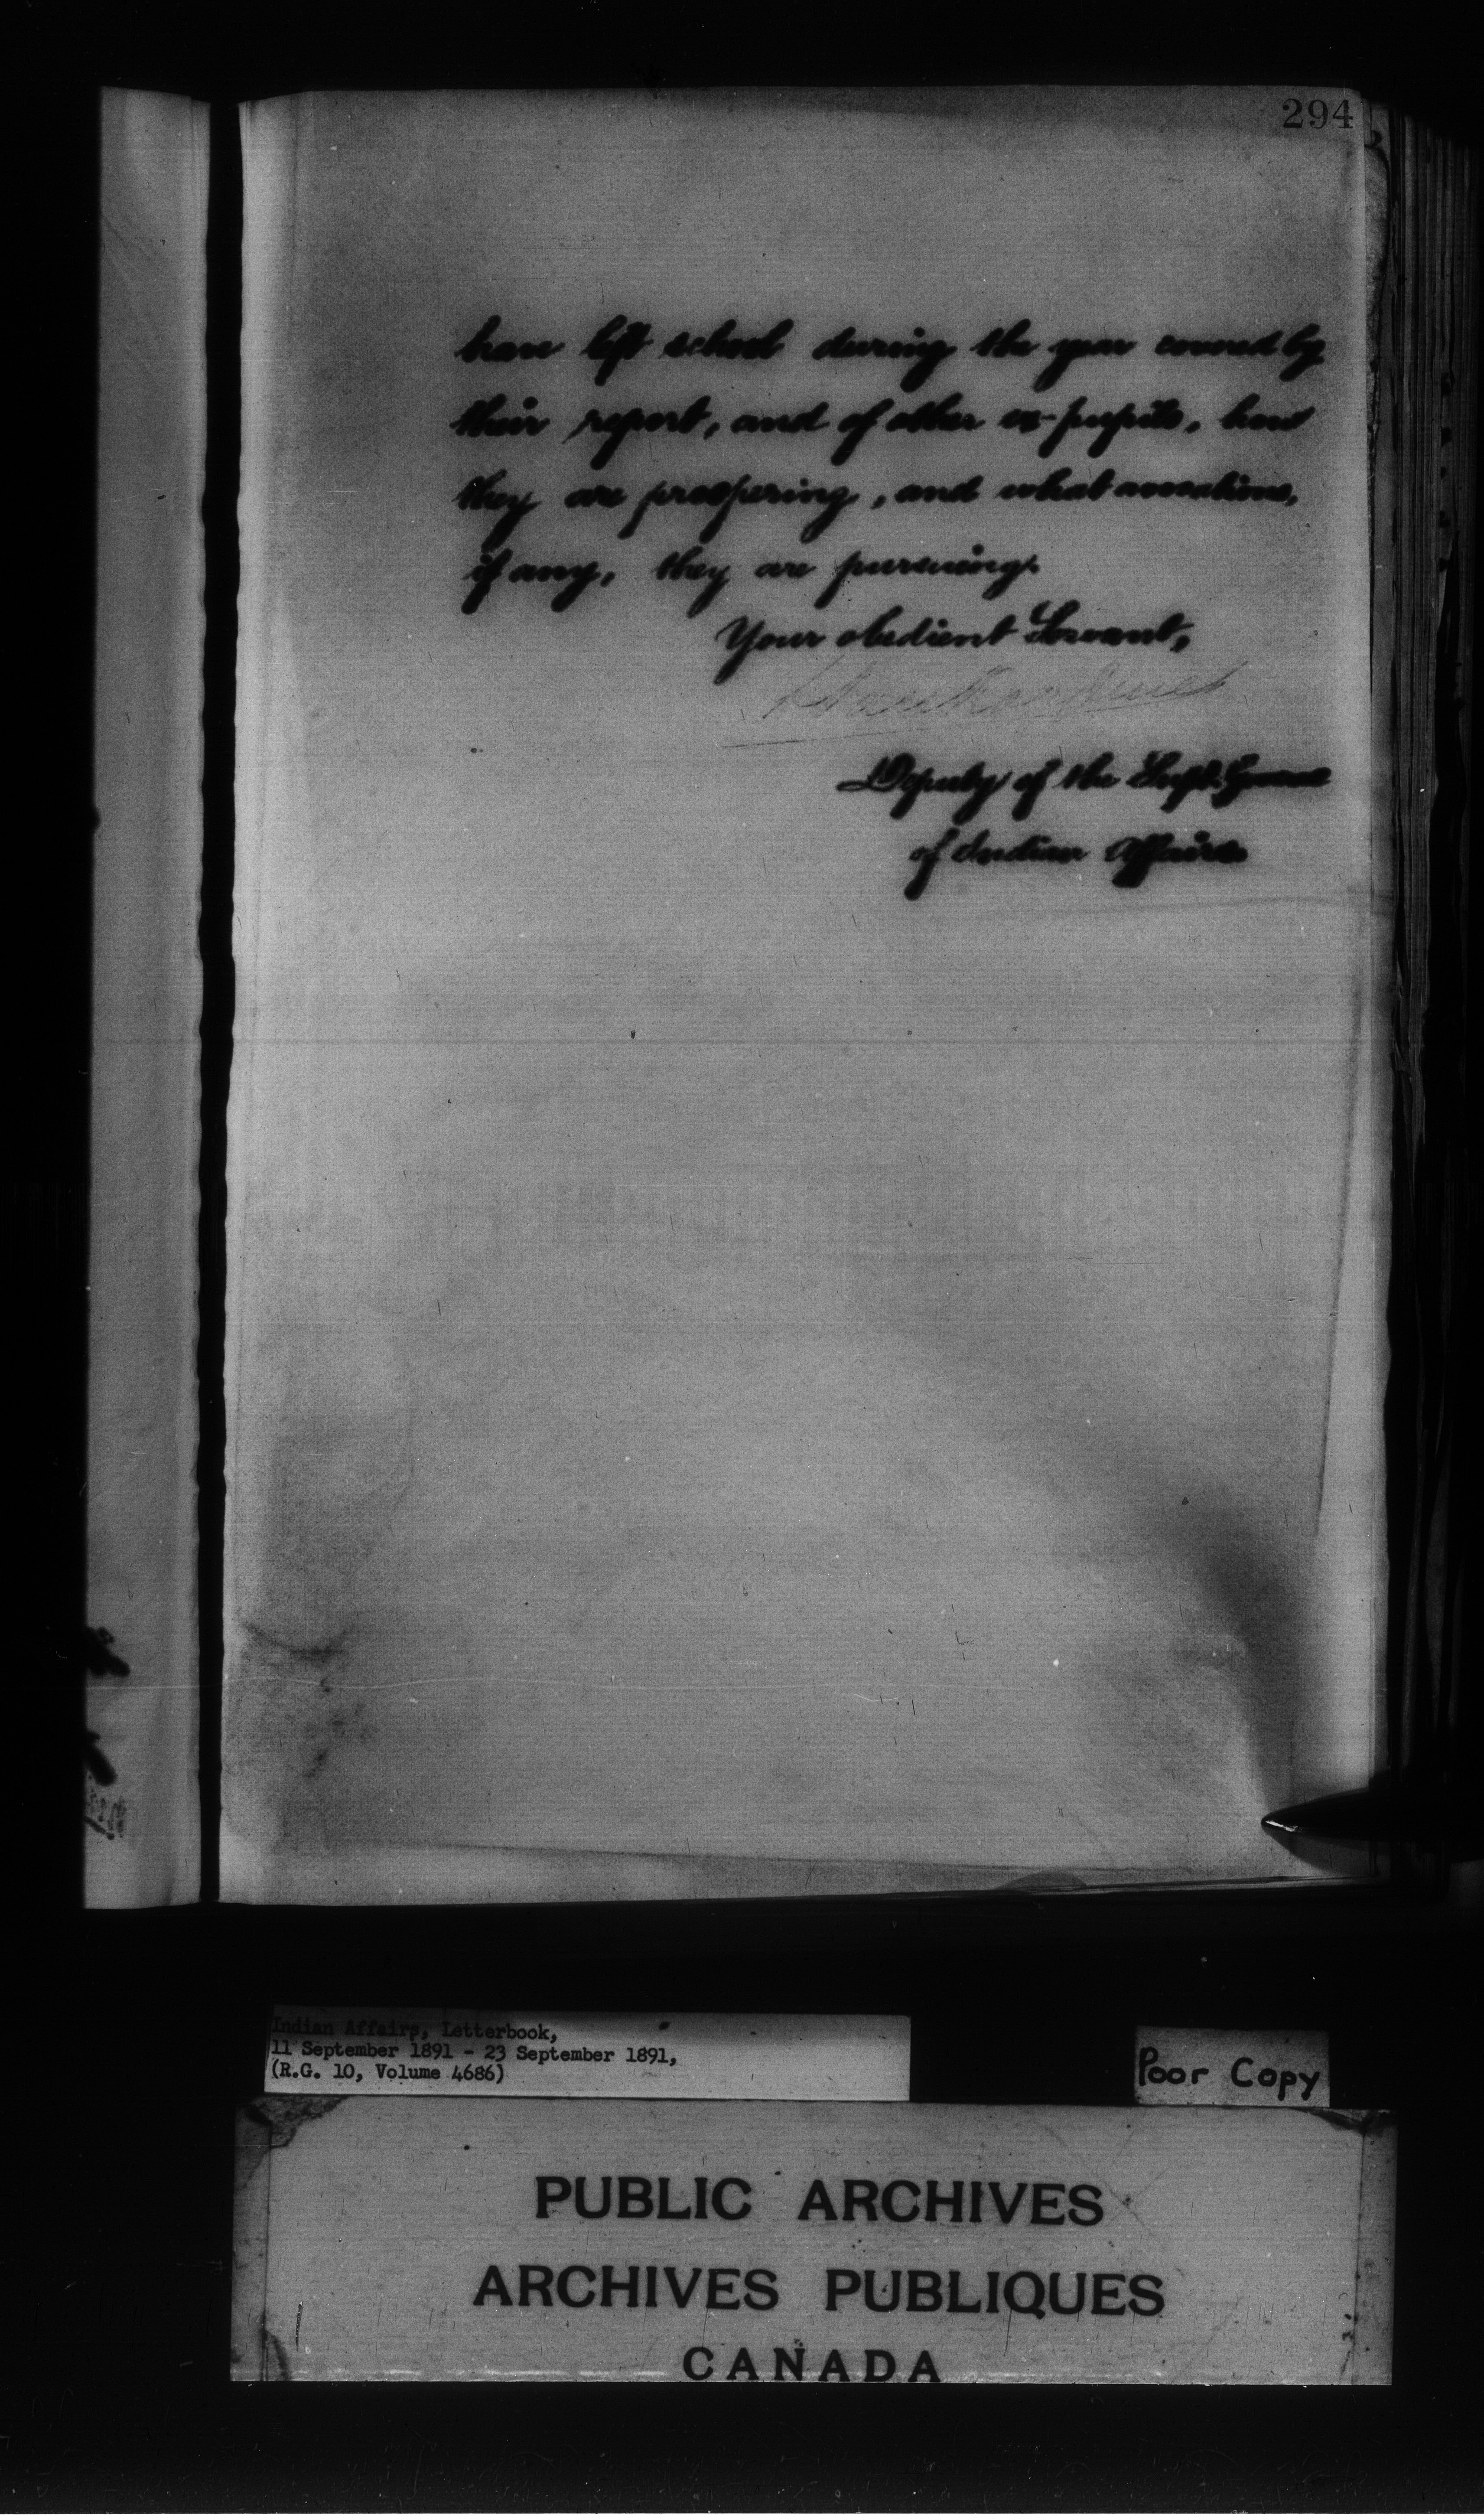 294
have left school during the year covered by
their report, and of other ex-pupils, how
they are prospering, and what avocations,
if any, they are pursuing.
Your obedient Servant,
L Vankoughnet
Deputy of the Supt. General
of Indian Affairs
Indian Affairs, Letterbook,
11 September 1891 - 23 September 1891,
(R.G. 10, Volume 4686)
Poor Copy
PUBLIC ARCHIVES
ARCHIVES PUBLIQUES
CANADA